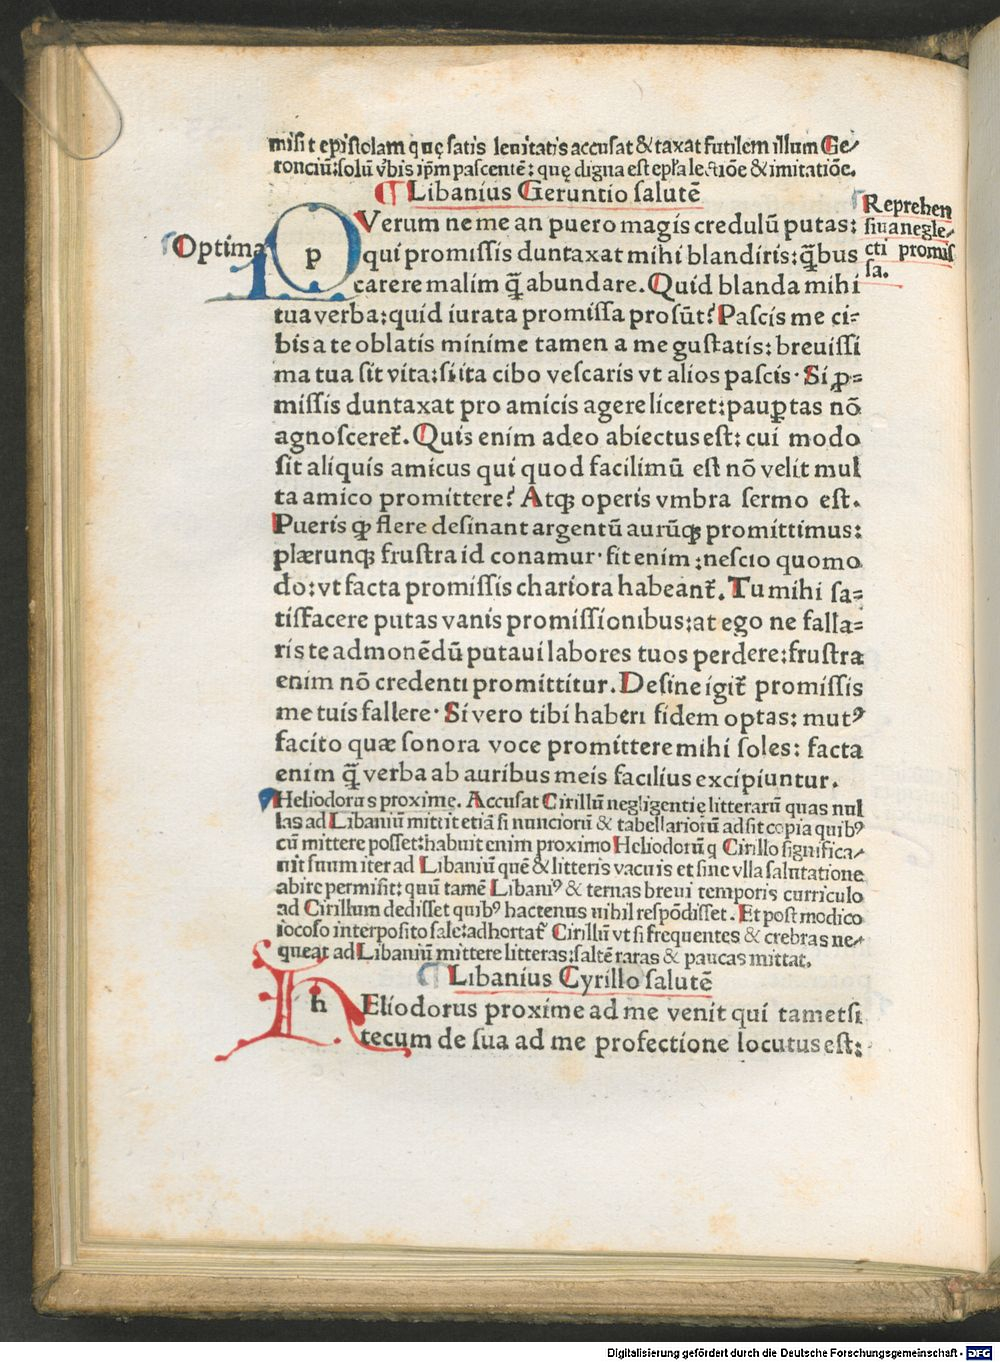 misit epistolam quę satis leuitatis accusat & taxat futilem illum Ge⸗
ronciū:solū v̄bis ip̄m pascentē: quę digna est epl̄a lectiōe & imitatiōe.
¶ Libanius Geruntio salutē
Reprehen
siua negle⸗
cti promis
sa.
Optima
p Verum ne me an puero magis credulū putas:
qui promissis duntaxat mihi blandiris: q̄bus
carere malim q̄ abundare. Quid blanda mihi
tua verba: quid iurata promissa prosūt? Pascis me ci⸗
bis a te oblatis minime tamen a me gustatis: breuissi
ma tua sit vita: si ita cibo vescaris vt alios pascis. Si ꝓ⸗
missis duntaxat pro amicis agere liceret: paup̱tas nō
agnosceret̄. Quis enim adeo abiectus est: cui modo
sit aliquis amicus qui quod facilimū est nō velit mul
ta amico promittere? Atqꝫ operis vmbra sermo est.
Pueris qꝫ flere desinant argentū aurūqꝫ promittimus:
plærunqꝫ frustra id conamur. fit enim: nescio quomo
do: vt facta promissis chariora habeant̄. Tu mihi sa⸗
tisfacere putas vanis promissionibus: at ego ne falla⸗
ris te admonēdū putaui labores tuos perdere: frustra
enim nō credenti promittitur. Desine igit̄ promissis
me tuis fallere. Si vero tibi haberi fidem optas: mutꝰ
facito quæ sonora voce promittere mihi soles: facta
enim q̄ verba ab auribus meis facilius excipiuntur.
Heliodorus proxime. Accusat Cirillū negligentię litterarū quas nul
las ad Libaniū mittit etiā si nunciorū & tabellariorū adsit copia quibꝰ
cū mittere posset: habuit enim proximo Heliodorū q Cirillo significa⸗
uit suum iter ad Libaniū quē & litteris vacuis et sine vlla salutatione
abire permisit: quū tamē Libaniꝰ & ternas breui temporis curriculo
ad Cirillum dedisset quibꝰ hactenus nihil respōdisset. Et post modico
iocoso interposito sale: adhortat̄ Cirillū vt si frequentes & crebras ne⸗
queat ad Libaniū mittere litteras: saltē raras & paucas mittat.
¶ Libanius Cyrillo salutē
h Eliodorus proxime ad me venit qui tametsi
tecum de sua ad me profectione locutus est:
Digitalisierung gefördert durch die Deutsche Forschungsgemeinschaft - DFG